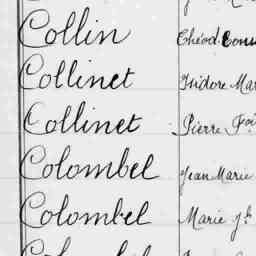 Collin Théod.
Collinet Isidore Mar
Collinet Pierre
Colombel Jean Marie
Colombel Marie